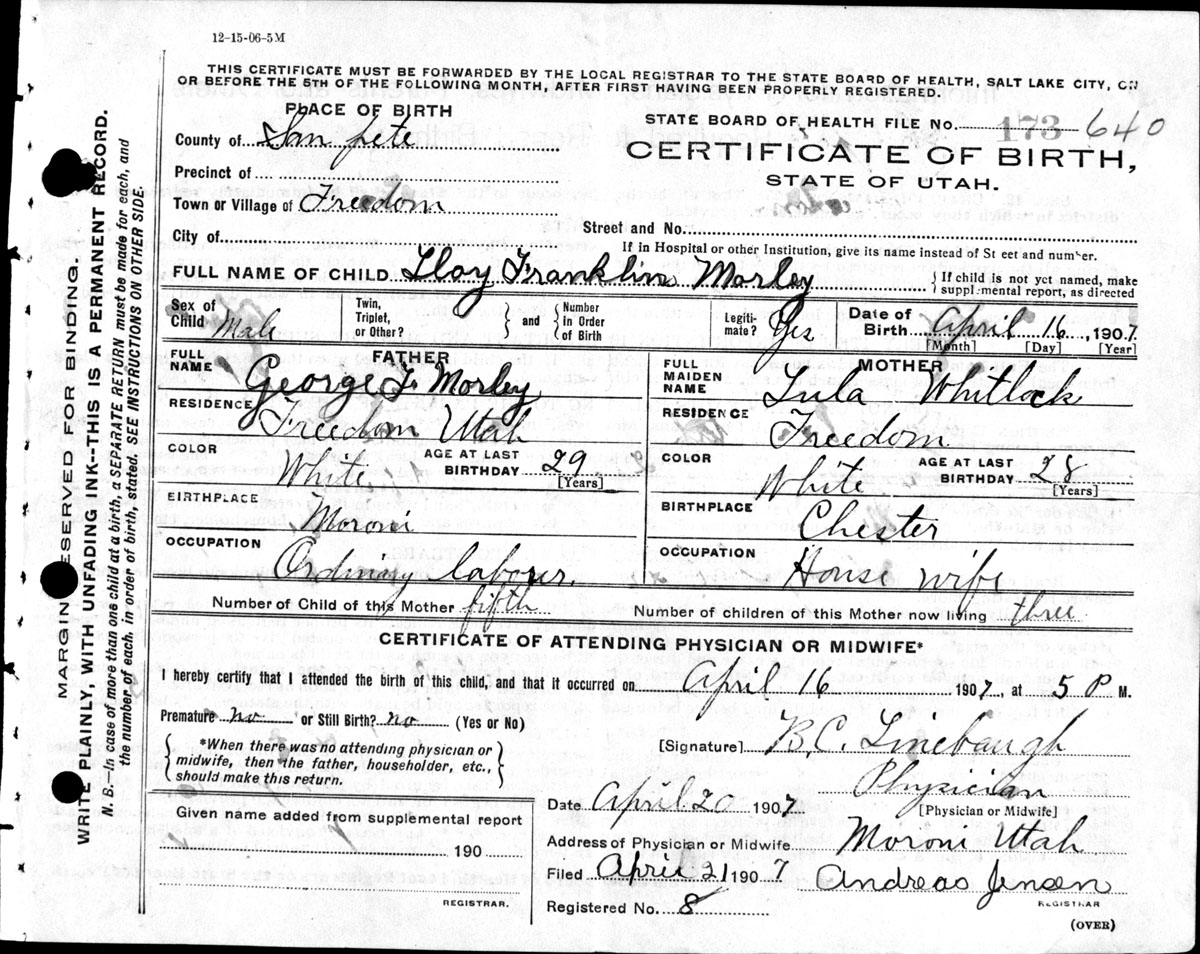 12-15-06-5M
THIS CERTIFICATE MUST BE FORWARDED BY THE LOCAL REGISTRAR TO THE STATE BOARD OF HEALTH, SALT LAKE CITY, ON
OR BEFORE THE 5TH OF THE FOLLOWING MONTH, AFTER FIRST HAVING BEEN PROPERLY REGISTERED.
PLACE OF BIRTH
STATE BOARD OF HEALTH FILE No. 173-640
County of San pete
CERTIFICATE OF BIRTH,
STATE OF UTAH.
Precinct of
Town or Village of Freedom
Street and No.
City of
If in Hospital or other Institution, give its name instead of St eet and number.
FULL NAME OF CHILD. Lloy Franklin Morley { If child is not yet named, make supplmental report, as directed
Sex of Child Male Twin, Triplet, or Other? } and { Number in Order of Birth Legiti-mate? Yes Date of Birth April 16, 1907.
[Month] [Day] [Year]
FATHER
FULL NAME George F Morley
RESIDENCE Freedom Utah
COLOR White AGE AT LAST BIRTHDAY 29
[Years]
BIRTHPLACE Moroni
OCCUPATION Ordinary labourer.
MOTHER
FULL MAIDEN NAME Lula Whitlock
RESIDENCE Freedom
COLOR White AGE AT LAST BIRTHDAY 28
[Years]
BIRTHPLACE Chester
OCCUPATION House wife
Number of Child of this Mother fifth Number of children of this Mother now living three
CERTIFICATE OF ATTENDING PHYSICIAN OR MIDWIFE*
I hereby certify that I attended the birth of this child, and that it occurred on April 16 1907, at 5 P M.
Premature no or Still Birth? no (Yes or No)
{ *When there was no attending physician or
midwife, then the father, householder, etc.,
should make this return. }
[Signature] B.C. Linebaugh
Physician
[Physician or Midwife]
Given name added from supplemental report
190
REGISTRAR.
Date April 20 1907
Address of Physician or Midwife Moroni Utah
Filed April 21 1907 Andreas Jensen
REGISTRAR
Registered No. 8
(OVER)
MARGIN RESERVED FOR BINDING.
WRITE PLAINLY, WITH UNFADING INK--THIS IS A PERMANENT RECORD.
N. B.—In case of more than one child at a birth, a SEPARATE RETURN must be made for each, and
the number of each, in order of birth, stated. SEE INSTRUCTIONS ON OTHER SIDE.